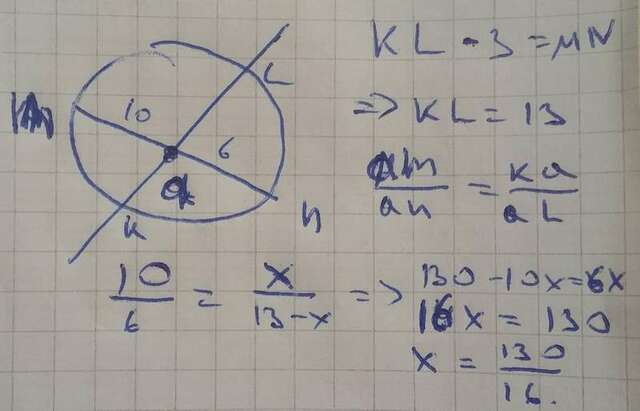 KL - 3 = MN
L
10
=> KL = 13
6
am/an = Ka/aL
a
n
K
10/6 = x/13-x => 130 - 10x = 6x
16x = 130
x = 130/16.